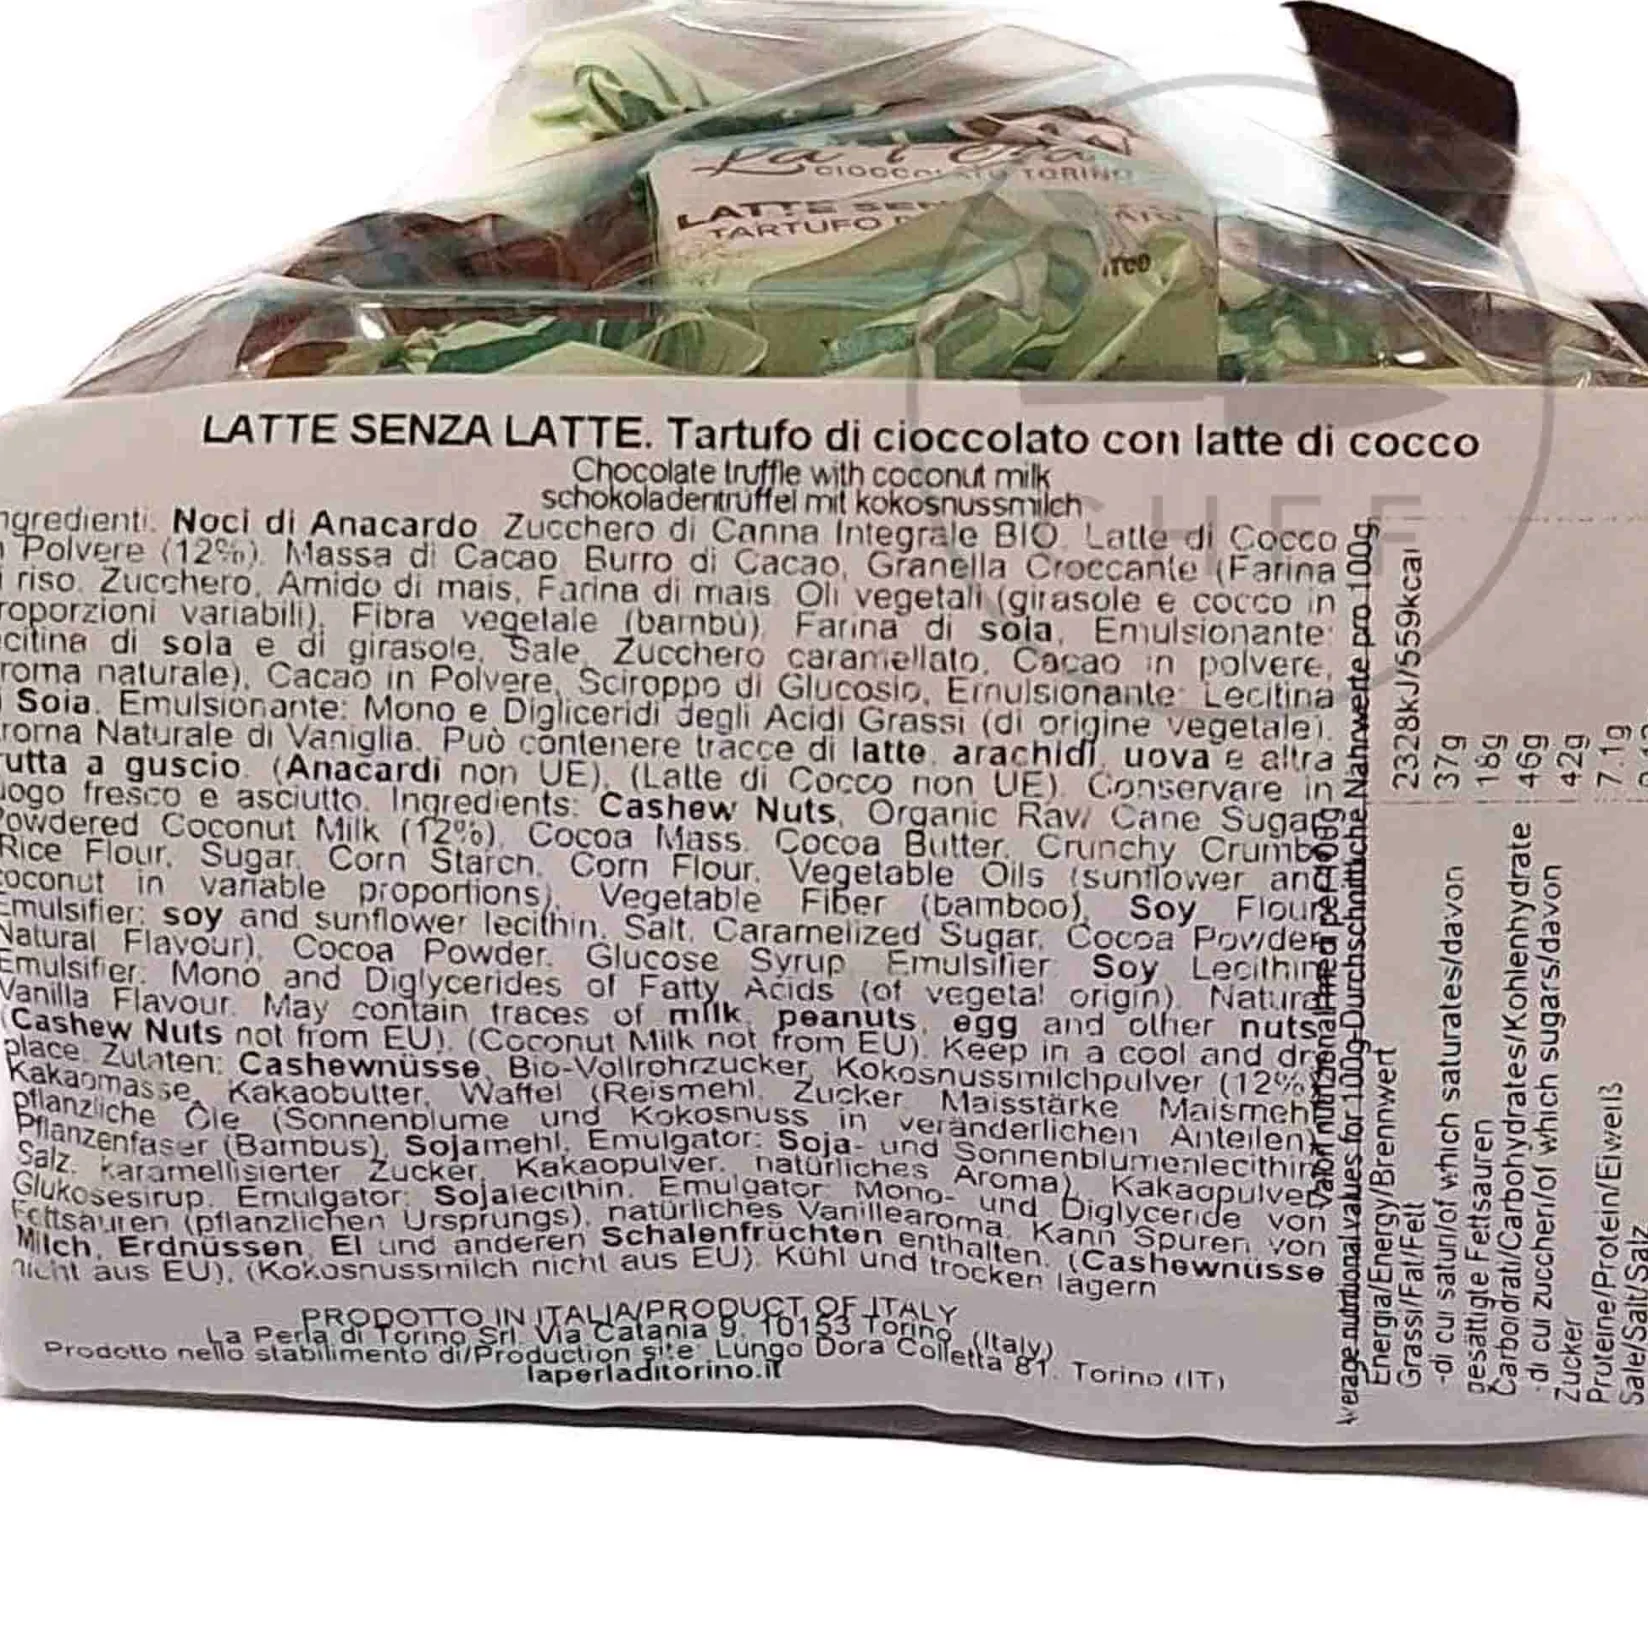 CIOCCOLATO TORINO
LATTE
TARTUFO
LATTE SENZA LATTE. Tartufo di cioccolato con latte di cocco
Chocolate truffle with coconut milk
schokoladentrüffel mit kokosnussmilch
ngredienti. Noci di Anacardo Zucchero di Canna Integrale BIO. Latte di Cocco
Polvere (12%). Massa di Cacao Burro di Cacao, Granella Croccante (Farina
riso. Zucchero, Amido di mais, Farina di mais Oli vegetali (girasole e cocco in
roporzioni variabili), Fibra vegetale (bambù), Farina di soia, Emulsionante:
citina di soia e di girasole, Sale, Zucchero caramellato, Cacao in polvere,
roma naturale), Cacao in Polvere, Sciroppo di Glucosio, Emulsionante: Lecitina
Soia. Emulsionante: Mono e Digliceridi degli Acidi Grassi (di origine vegetale).
roma Naturale di Vaniglia. Può contenere tracce di latte, arachidi, uova e altra
utta a guscio. (Anacardi non UE), (Latte di Cocco non UE). Conservare in
uogo fresco e asciutto. Ingredients: Cashew Nuts, Organic Raw Cane Sugar
Powdered Coconut Milk (12%), Cocoa Mass. Cocoa Butter, Crunchy Crumb
Rice Flour, Sugar, Corn Starch, Corn Flour, Vegetable Oils (sunflower and
coconut in variable proportions), Vegetable Fiber (bamboo), Soy Flour
Emulsifier: soy and sunflower lecithin, Salt, Caramelized Sugar, Cocoa Powder
Natural Flavour), Cocoa Powder. Glucose Syrup Emulsifier Soy Lecithin
Emulsifier: Mono and Diglycerides of Fatty Acids (of vegetal origin). Natural
Vanilla Flavour. May contain traces of milk, peanuts, egg and other nuts
(Cashew Nuts not from EU). (Coconut Milk not from EU). Keep in a cool and dry
place. Zutaten: Cashewnüsse, Bio-Vollrohrzucker, Kokosnussmilchpulver (12%
Kakaomasse, Kakaobutter, Waffel (Reismehl, Zucker Maisstärke Maismehl
pflanzliche Öle (Sonnenblume und Kokosnuss in veränderlichen Anteilen)
Pflanzenfaser (Bambus), Sojamehl, Emulgator: Soja- und Sonnenblumenlecithin
Salz, karamellisierter Zucker, Kakaopulver, natürliches Aroma), Kakaopulver
Glukosesirup. Emulgator: Sojalecithin, Emulgator Mono- und Diglyceride von
Fettsäuren (pflanzlichen Ursprungs), natürliches Vanillearoma. Kann Spuren von
Milch, Erdnüssen, Ei und anderen Schalenfrüchten enthalten. (Cashewnüsse
nicht aus EU), (Kokosnussmilch nicht aus EU). Kühl und trocken lagern
PRODOTTO IN ITALIA/PRODUCT OF ITALY
La Perla di Torino Srl, Via Catania 9, 10153 Torino (Italy)
Prodotto nello stabilimento di/Production site: Lungo Dora Colletta 81, Torino (IT)
laperladitorino.it
Valori nutrizionali medi per 100g
Average nutritional values for 100g-Durchschnittliche Nahrwerte pro 100g
Energia/Energy/Brennwert 2328kJ/559kcal
Grassi/Fat/Fett 37g
-di cui saturi/of which saturates/davon 18g
gesättigte Fettsäuren
Carboidrati/Carbohydrates/Kohlenhydrate 46g
-di cui zuccheri/of which sugars/davon 42g
Zucker
Proteine/Protein/Eiweiß 7.1g
Sale/Salt/Salz
CHEF